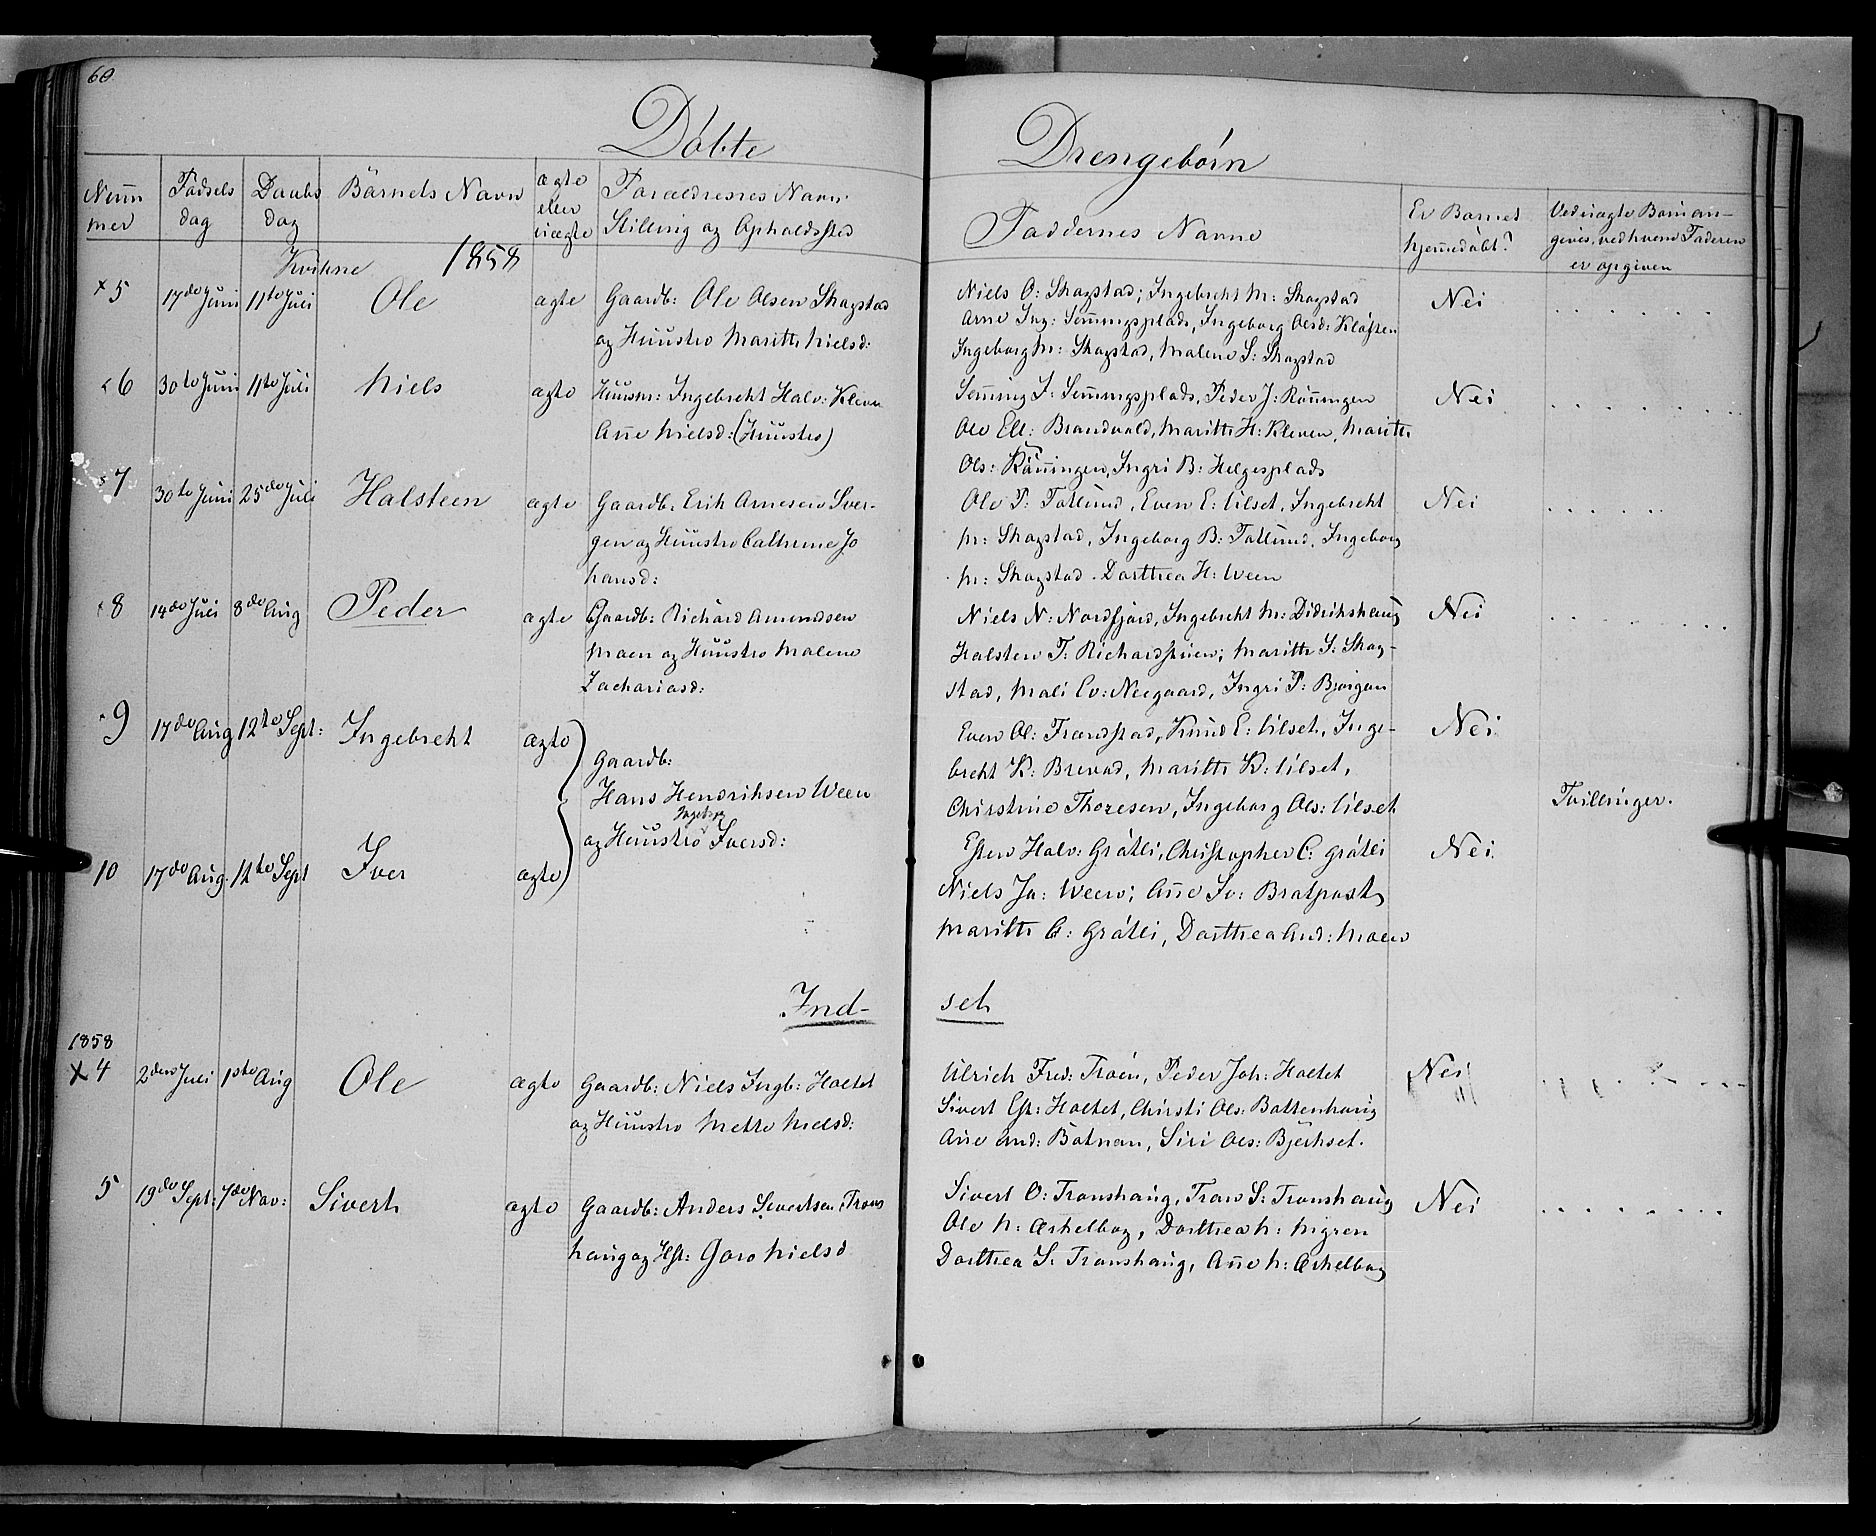 60
Döbte Drengebörn
Num̄mer
Fødsels dag
Daabs dag
Barnets Navn
ægte eller uægte
Forældrenes Navn Stilling og Opholdssted
Faddernes Navne
Er Barnet hjemmedöbt?
Ved uægte Barn angives, ved hvem Faderen er opgiven
Kvikne 1858
×5 17de Juni 11te Juli Ole ægte Gaardb: Ole Olsen Skagstad
og Huustro Marith Nielsd:
Niels O: Skagstad; Ingebreht M: Skagstad Nei
Arne Ing: Semingsplads, Ingeborg Olsd: Kløften
Ingeborg M: Skagstad, Malene S: Skagstad
6 30te Juni 11te Juli Niels ægte Huusm: Ingebreht Halv: Kleven
An̄e Nielsd: (Huustro)
Sem̄ing I: Sem̄ingsplads, Peder J: Rön̄ingen Nei
Ole Ell: Brandvold, Marith H: Kleven, Marith
Ols: Rön̄ingen, Ingri B: Helgesplads
7 30te Juni 25de Juli Halsteen ægte Gaardb: Erik Arnesen Sver-
gen og Huustro Cathrine Jo
hansd:
Ole P: Fatlund, Even E: Lilset, Ingebreht Nei
M: Skagstad, Ingeborg B: Fatlund, Ingeborg
M: Skagstad. Dorthea H: Ween
8 14de Juli 8de Aug Peder ægte Gaardb: Richard Amundsen
Moen og Huustro Malene
Zachariasd:
Niels N: Nordfjord, Ingebreht M: Didrikshaug Nei
Halsten T: Richardstuen; Marith S: Skag-
stad, Mali Ev: Neegaard, Ingri P: Bjørgen
9 17de Aug 12te Sept: Ingebreht ægte
Gaardb:
Hans Hendriksen Ween
Ingeborg
og Huustro Iversd:
Even Ol: Frondstad, Knud E: Lilset, Inge- Nei
breht K: Brevad, Marith K: Lilset,
Christine Thoresen, Ingeborg Ols: Lilset
Tvillinger.
10 17de Aug. 12te Sept Iver ægte
Esten Halv: Gråtli, Christopher C: Gråtli Nei
Niels Ja: Ween; An̄e Iv: Bratpast
Marith C: Gråtli, Dorthea And: Moen
Ind- set
1858
×4 2den Juli 1ste Aug Ole ægte Gaardb: Niels Ingb: Holtet
og Huustro Mette Nielsd:
Ulrich Fred: Troen, Peder Joh: Holtet Nei
Sivert Est: Holtet, Chirsti Ols: Battenhaug
An̄e And: Botnan, Siri Ols: Bjerkset.
5 19de Sept: 7de Nov: Sivert ægte Gaardb: Anders Sivertsen Trons
haug og Hst: Goro Nielsd
Sivert O: Tronshaug, Tron S: Tronshaug Nei
Ole N: Eshelbog, Dorthea N: Myren
Dorthea S: Tronshaug, An̄e N: Eshelbog